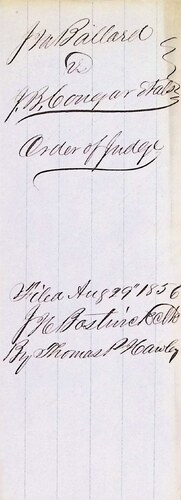 J M Ballard
vs
J. B. Conegar et als
Order of Judge
Filed Aug 29th 1856
J H Bostwick Clk
By Thomas P Hawley